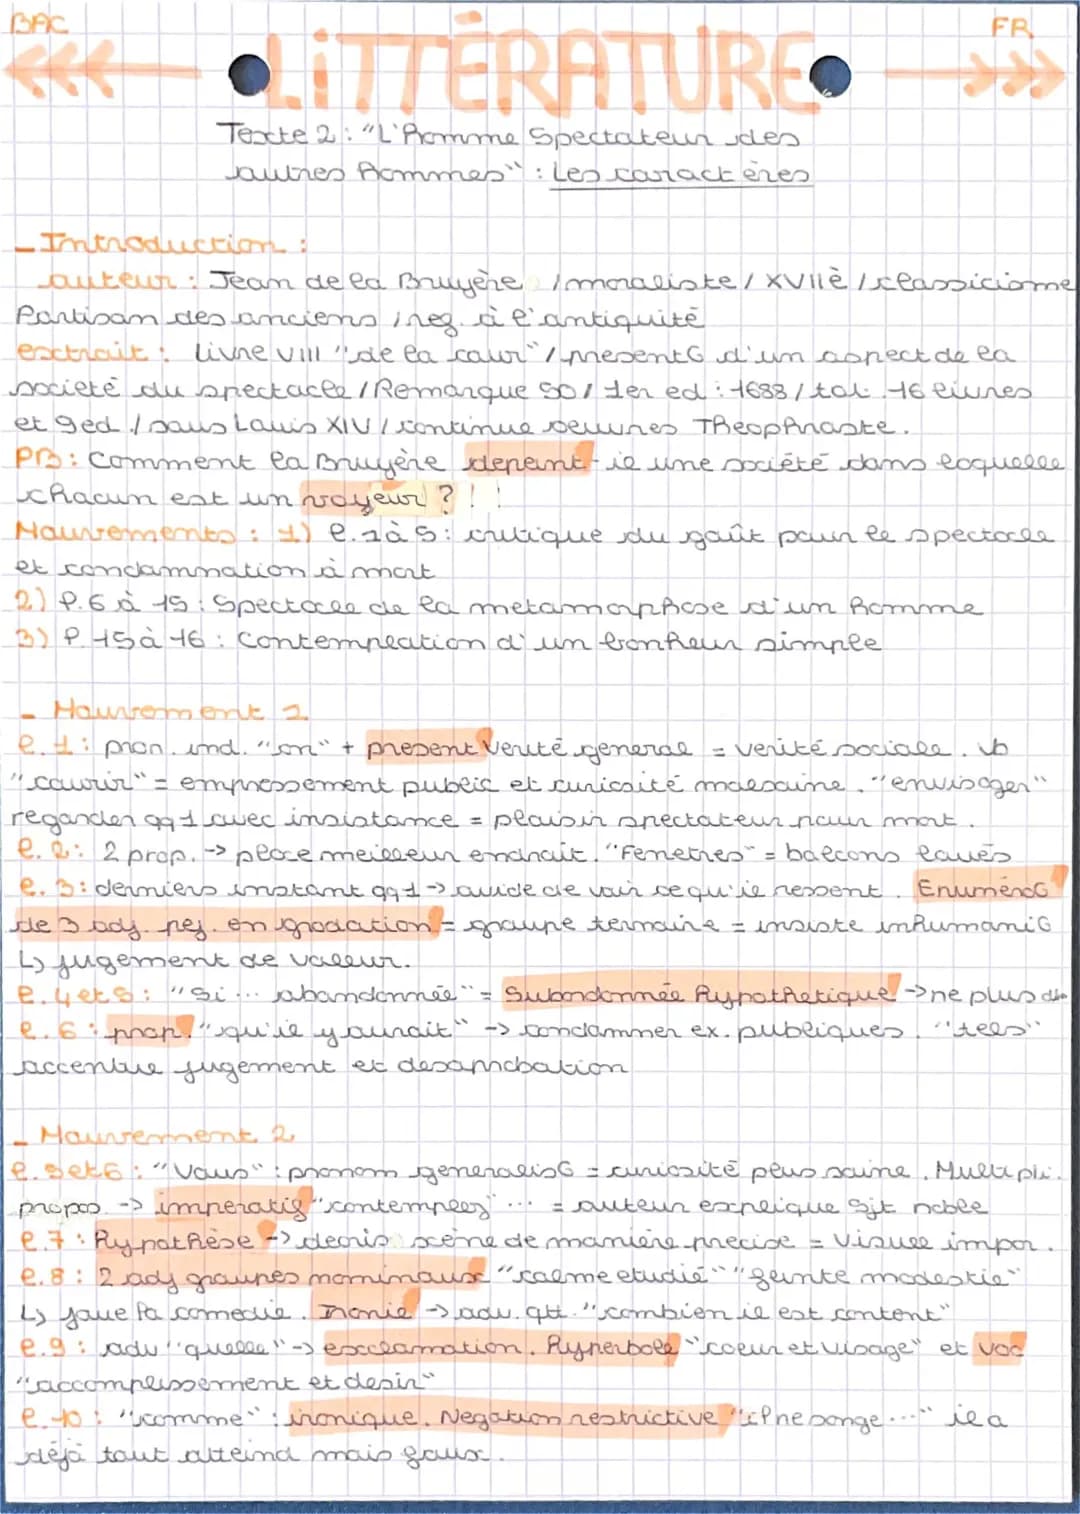 BAC
FR
LITTÉRATURE
Texte 2 : "L'homme Spectateur des
autres hommes" : Les caractères
- Introduction :
auteur : Jean de la Bruyère / moraliste / XVIIè / classicisme
Partisan des anciens, reg. à l'antiquité
extrait : livre VIII "de la cour" / présentG d'un aspect de la
société du spectacle / Remarque 50 / 1er ed : 1688 / tot. 16 livres
et 9ed / sous Louis XIV / continue oeuvres Theophraste.
PB : Comment la Bruyère depeint-il une société dans laquelle
chacun est un voyeur ?
Mouvements : 1) l. 1 à 5 : critique du goût pour le spectacle
et condamnation à mort
2) l. 6 à 15 : Spectacle de la metamorphose d'un homme
3) l. 15 à 16 : Contemplation d'un bonheur simple
- Mouvement 1
l. 1 : pron. ind. "on" + present verité general = verité sociale. vb
"courir" = empressement public et curiosité malsaine. "envisager"
regarder qq1 avec insistance = plaisir spectateur pour mort.
l. 2 : 2 prop. -> place meilleur endroit. "Fenetres" = balcons loués
l. 3 : derniers instant qq1 -> avide de voir ce qu'il ressent. EnumérG
de 3 adj. pej. en gradation = groupe ternaire = insiste inhumaniG
↳ jugement de valeur.
l. 4 et 5 : "Si ... abandonnée" = Subordonnée hypothetique -> ne plus
l. 6 : prop. "qu'il y aurait" -> condamner ex. publiques. "telles"
accentue jugement et desaprobation
- Mouvement 2
l. 5 et 6 : "Vous" : pronom generalisG = curiosité plus saine. Multipli.
propos. -> imperatif "contemplez" ... = auteur explique sjt noble
l. 7 : hypothèse -> decris scène de manière precise = visuel impor.
l. 8 : 2 adj groupes nominaux "calme etudié" "feinte modestie"
↳ joue la comedie. Ironie -> adv. qtt. "combien il est content"
l. 9 : adv "quelle" -> exclamation. Hyperbole "coeur et visage" et voc
"accomplissement et desir"
l. 10 : "comme" : ironique. Negation restrictive "il ne songe ..." il a
déjà tout atteind mais faux.